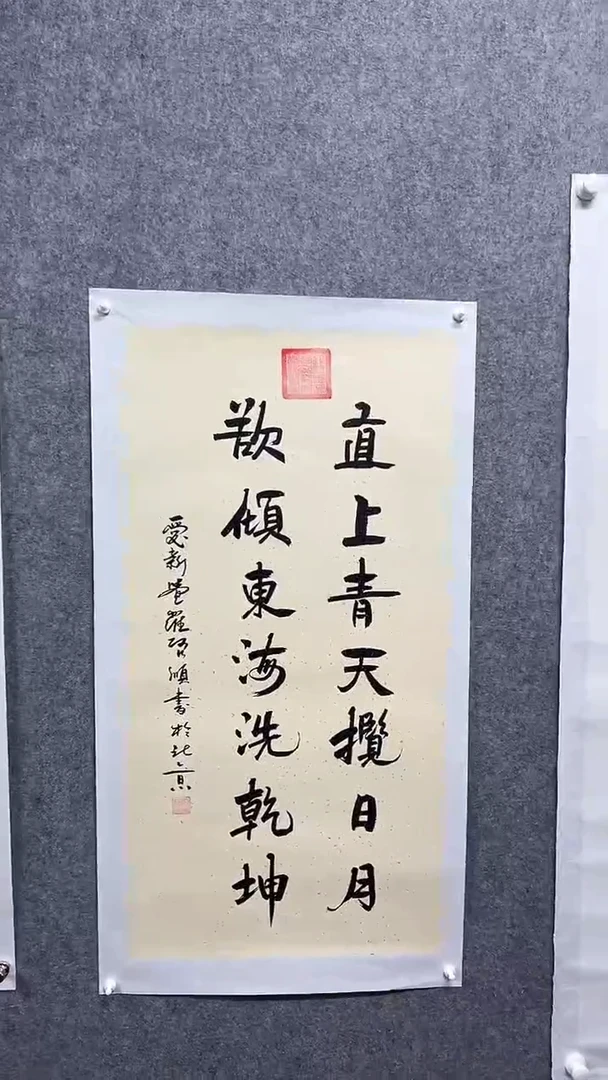 直上青天攬日月
欲傾東海洗乾坤
愛新覺羅啟順書於北京